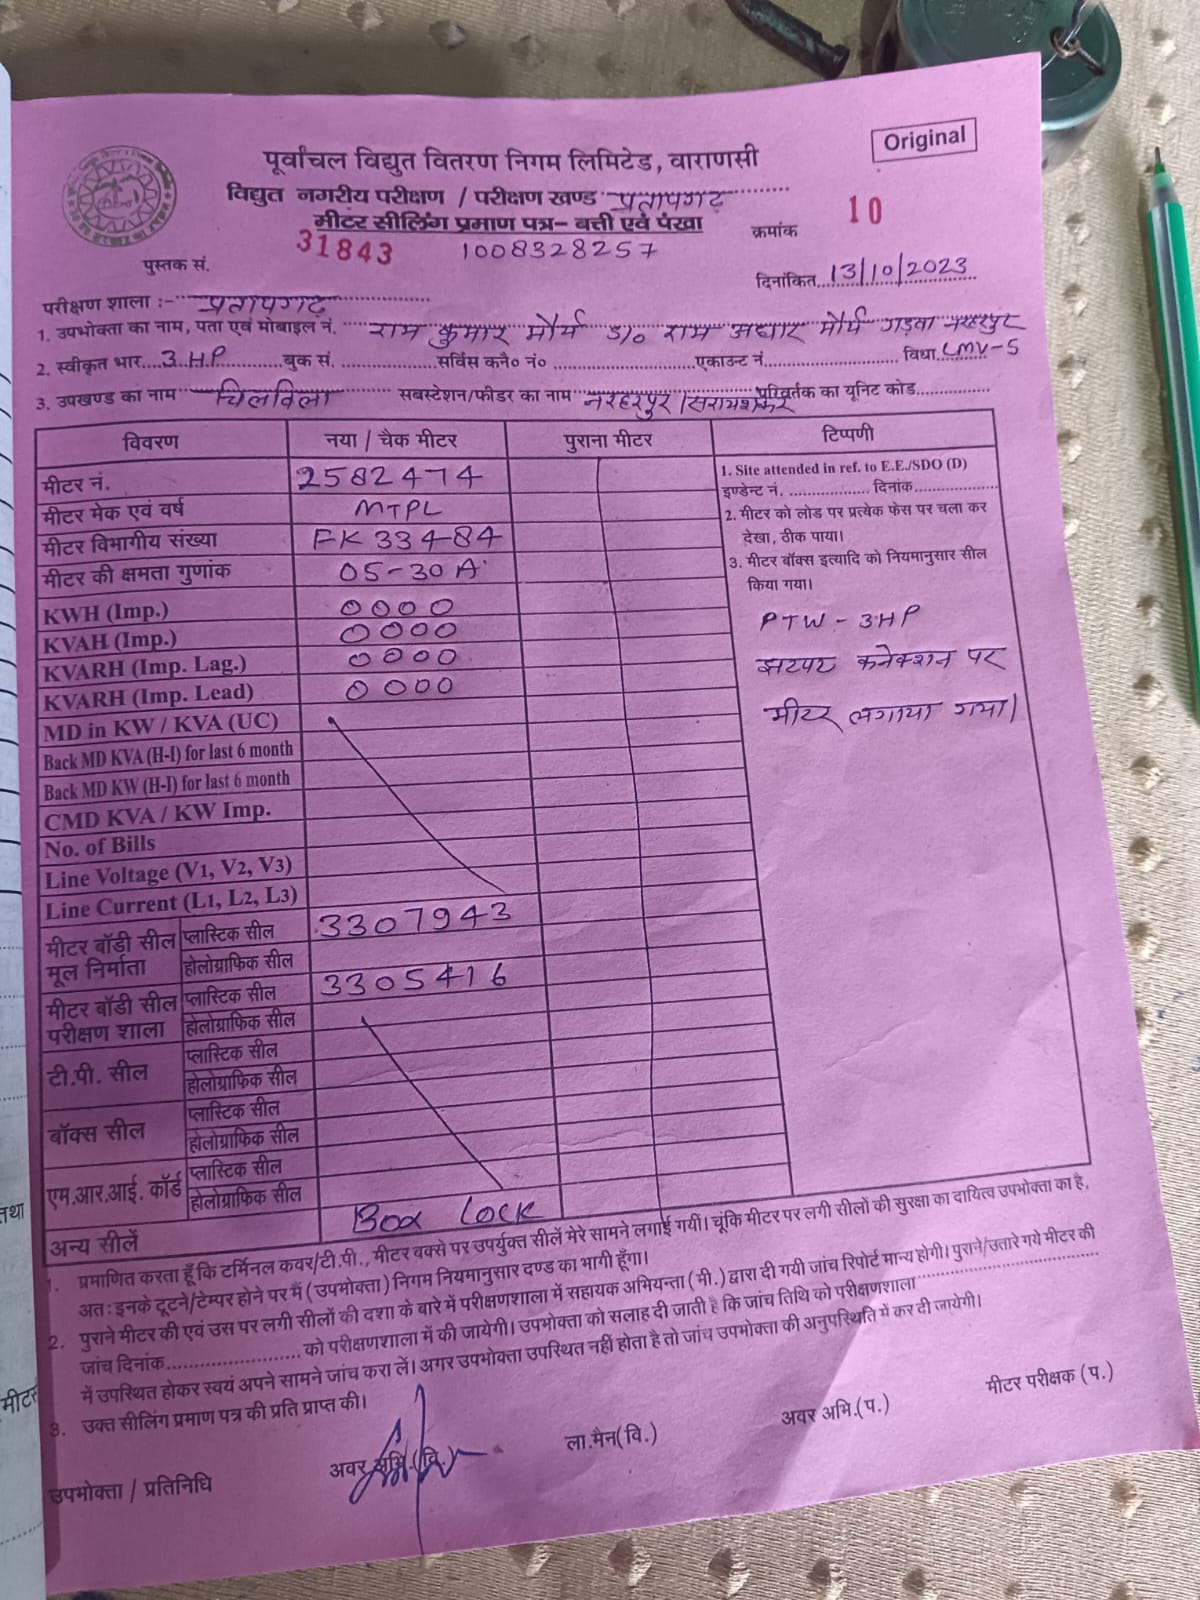 Original
पूर्वांचल विद्युत वितरण निगम लिमिटेड, वाराणसी
विद्युत नगरीय परीक्षण / परीक्षण खण्ड प्रतापगढ़
मीटर सीलिंग प्रमाण पत्र– बत्ती एवं पंखा
क्रमांक 10
पुस्तक सं. 31843 1008328257
दिनांकित 13/10/2023
परीक्षण शाला :- प्रतापगढ़
1. उपभोक्ता का नाम, पता एवं मोबाइल नं. राम कुमार मौर्य S/o राम अधार मौर्य गड़वा नरहरपुर
2. स्वीकृत भार 3 HP बुक सं. सर्विस कनै० नं० एकाउन्ट नं. विधा LMV-5
3. उपखण्ड का नाम चिलबिला सबस्टेशन/फीडर का नाम नरहरपुर / परिवर्तक का यूनिट कोड
विवरण नया / चैक मीटर पुराना मीटर टिप्पणी
मीटर नं. 2582474
मीटर मेक एवं वर्ष MTPL
मीटर विभागीय संख्या FK 33484
मीटर की क्षमता गुणांक 05-30 A
KWH (Imp.) 0000
KVAH (Imp.) 0000
KVARH (Imp. Lag.) 0000
KVARH (Imp. Lead) 0000
MD in KW / KVA (UC)
Back MD KVA (H-I) for last 6 month
Back MD KW (H-I) for last 6 month
CMD KVA / KW Imp.
No. of Bills
Line Voltage (V1, V2, V3)
Line Current (L1, L2, L3)
मीटर बॉडी सील मूल निर्माता
प्लास्टिक सील 3307943
होलोग्राफिक सील
मीटर बॉडी सील परीक्षण शाला
प्लास्टिक सील 3305416
होलोग्राफिक सील
टी.पी. सील
प्लास्टिक सील
होलोग्राफिक सील
बॉक्स सील
प्लास्टिक सील
होलोग्राफिक सील
एम.आर.आई. कॉर्ड
प्लास्टिक सील
होलोग्राफिक सील
अन्य सीलें Box Lock
1. Site attended in ref. to E.E./SDO (D)
इण्डेन्ट नं. दिनांक
2. मीटर को लोड पर प्रत्येक फेस पर चला कर
देखा, ठीक पाया।
3. मीटर बॉक्स इत्यादि को नियमानुसार सील
किया गया।
PTW - 3HP
झटपट कनेक्शन पर
मीटर लगाया गया।
1. प्रमाणित करता हूँ कि टर्मिनल कवर/टी.पी., मीटर बक्से पर उपर्युक्त सीलें मेरे सामने लगाई गयीं। चूंकि मीटर पर लगी सीलों की सुरक्षा का दायित्व उपभोक्ता का है,
अतः इनके टूटने/टेम्पर होने पर मैं (उपभोक्ता) निगम नियमानुसार दण्ड का भागी हूँगा।
2. पुराने मीटर की एवं उस पर लगी सीलों की दशा के बारे में परीक्षणशाला में सहायक अभियन्ता (मी.) द्वारा दी गयी जांच रिपोर्ट मान्य होगी। पुराने/उतारे गये मीटर की
जांच दिनांक को परीक्षणशाला में की जायेगी। उपभोक्ता को सलाह दी जाती है कि जांच तिथि को परीक्षणशाला
में उपस्थित होकर स्वयं अपने सामने जांच करा लें। अगर उपभोक्ता उपस्थित नहीं होता है तो जांच उपभोक्ता की अनुपस्थिति में कर दी जायेगी।
3. उक्त सीलिंग प्रमाण पत्र की प्रति प्राप्त की।
उपभोक्ता / प्रतिनिधि अवर अभि.(वि.) ला.मैन(वि.) अवर अभि.(प.) मीटर परीक्षक (प.)
तथा
मीटर